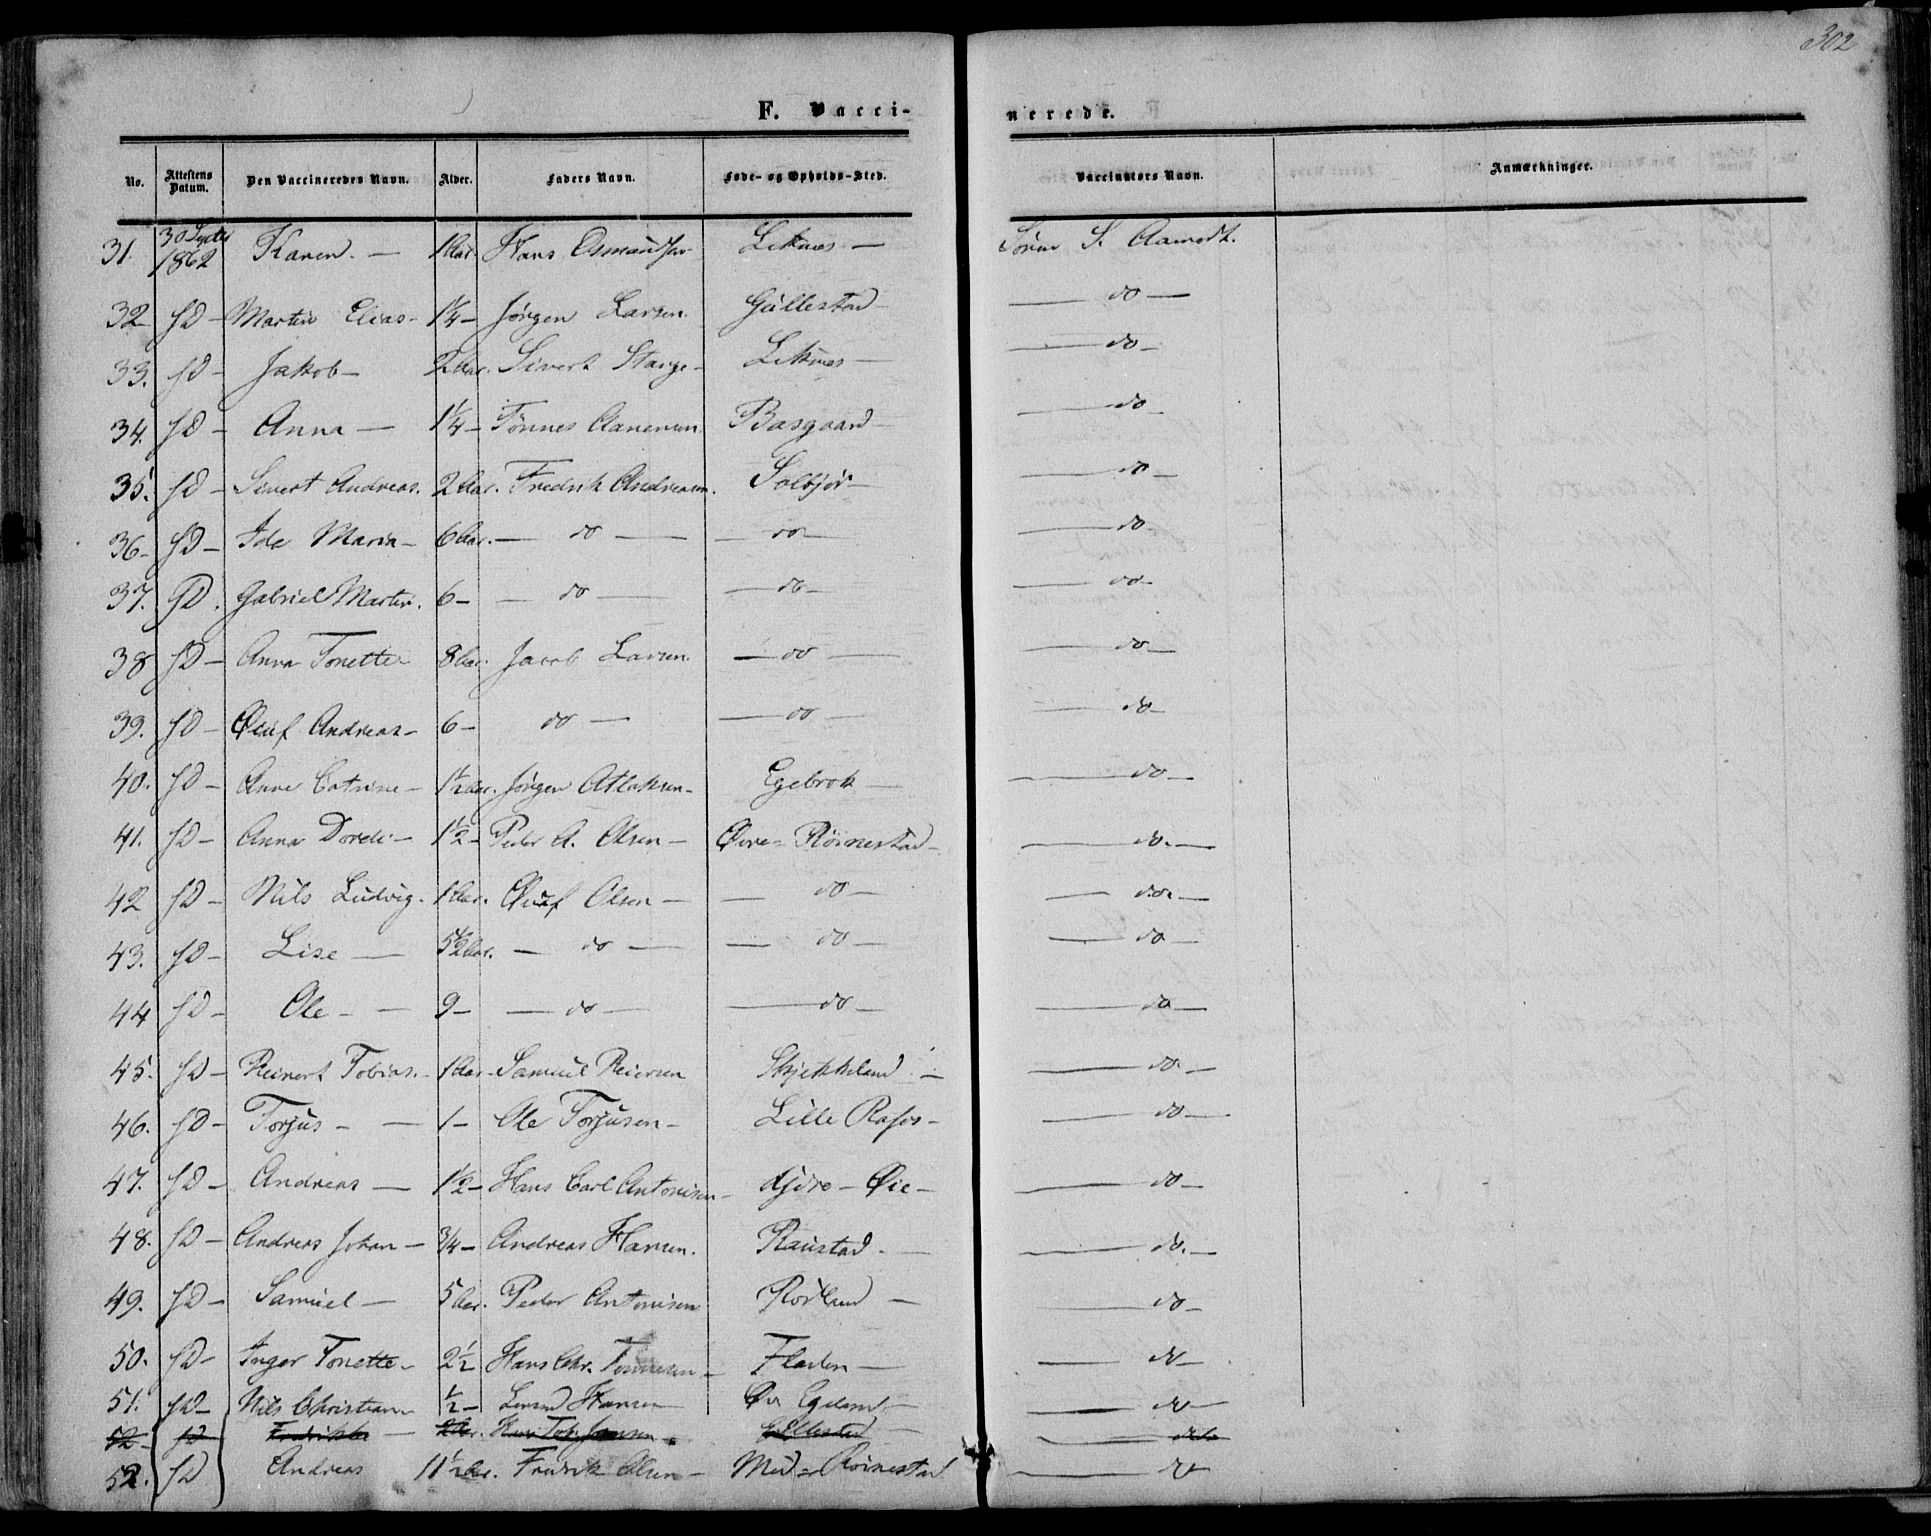 302
F. Vaccinerede.
No. Attestens Datum. Den Vaccineredes Navn. Alder. Faders Navn. Føde- og Opholds-Sted. Vaccinators Navn. Anmærkninger.
31. 30 Septbr 1862 Karen. — 1 Aar. Hans Osmundsen Leknes — Sören S. Aamodt.
32 sD — Martin Elias — 1 1/4 — Jørgen Larsen. Gullestad — do —
33. sD — Jakob — 2 Aar. Sivert Leknes — — do —
34. sD — Anna — 1 1/4 — Tønnes Aanensen Basgaard — — do —
35. sD — Sivert Andreas. 2 Aar. Fredrik Andreasen. — do —
36 — sD — Ida Maria — 6 Aar. — do — — do — — do —
37. sD. Gabriel Martin. 6 — — do — — do — — do —
38 sD — Anna Tonette 8 Aar. Jacob Larsen. — do — — do —
39. sD — Oluf Andreas — 6 — do — — do — — do —
40. sD — Anne Catrine — 1 1/2 Aar. Jørgen Atlaksen — Egebrok — — do —
41. sD — Anna Dorde — 1 1/2 — Peder A. Olsen — Øvre — Röinestad — — do. —
42 sD — Nils Ludvig. 1 Aar. Oluf Olsen — — do — — do. —
43. sD — Lise — 5 1/2 Aar. — do — — do — — do —
44 sD — Ole — — 9 — — do — — do — — do —
45. sD — Reinert Tobias. 1 Aar — Samuel Reiersen Skjekkeland — — do. —
46. sD — Torjus — — 1 — Ole Torjusen — Lille Rafos — — do —
47. sD — Andreas — 1 1/2 — Hans Carl Antonisen — Øie — — do —
48. sD — Andreas Johan — 3/4 — Andreas Hansen. Raustad. — — do. —
49. sD — Samuel — 5 Aar. Peder Antonisen Rödland — — do —
50. sD — Inger Tonette — 2 1/2 Hans Chr. Tønnesen — Fladen — — do —
51. sD — Nils Christian 1/2 — Hansen Øv Egeland — — do —
52 — sD Fredrikke — 2 Aar. Hans Tob. Jansen. Gullestad — — do
52. sD Andreas 11 1/2 Aar. Fredrik Olsen — Med — Röinestad — do